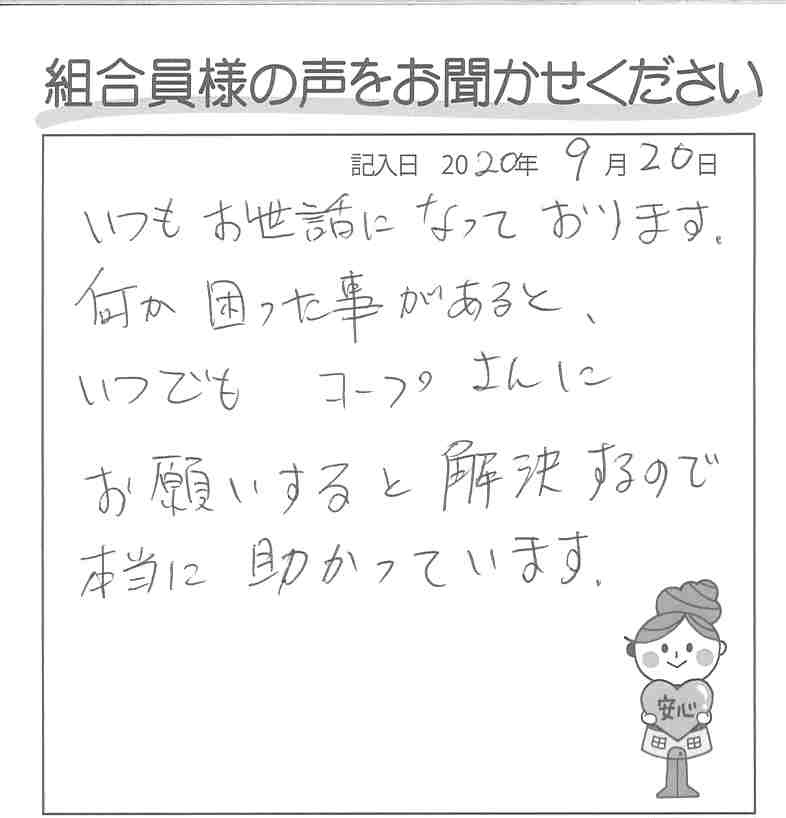 組合員様の声をお聞かせください
記入日 2020年 9月20日
いつもお世話になっております.
何か困った事があると、
いつでも コープさんに
お願いすると解決するので
本当に助かっています.
安心